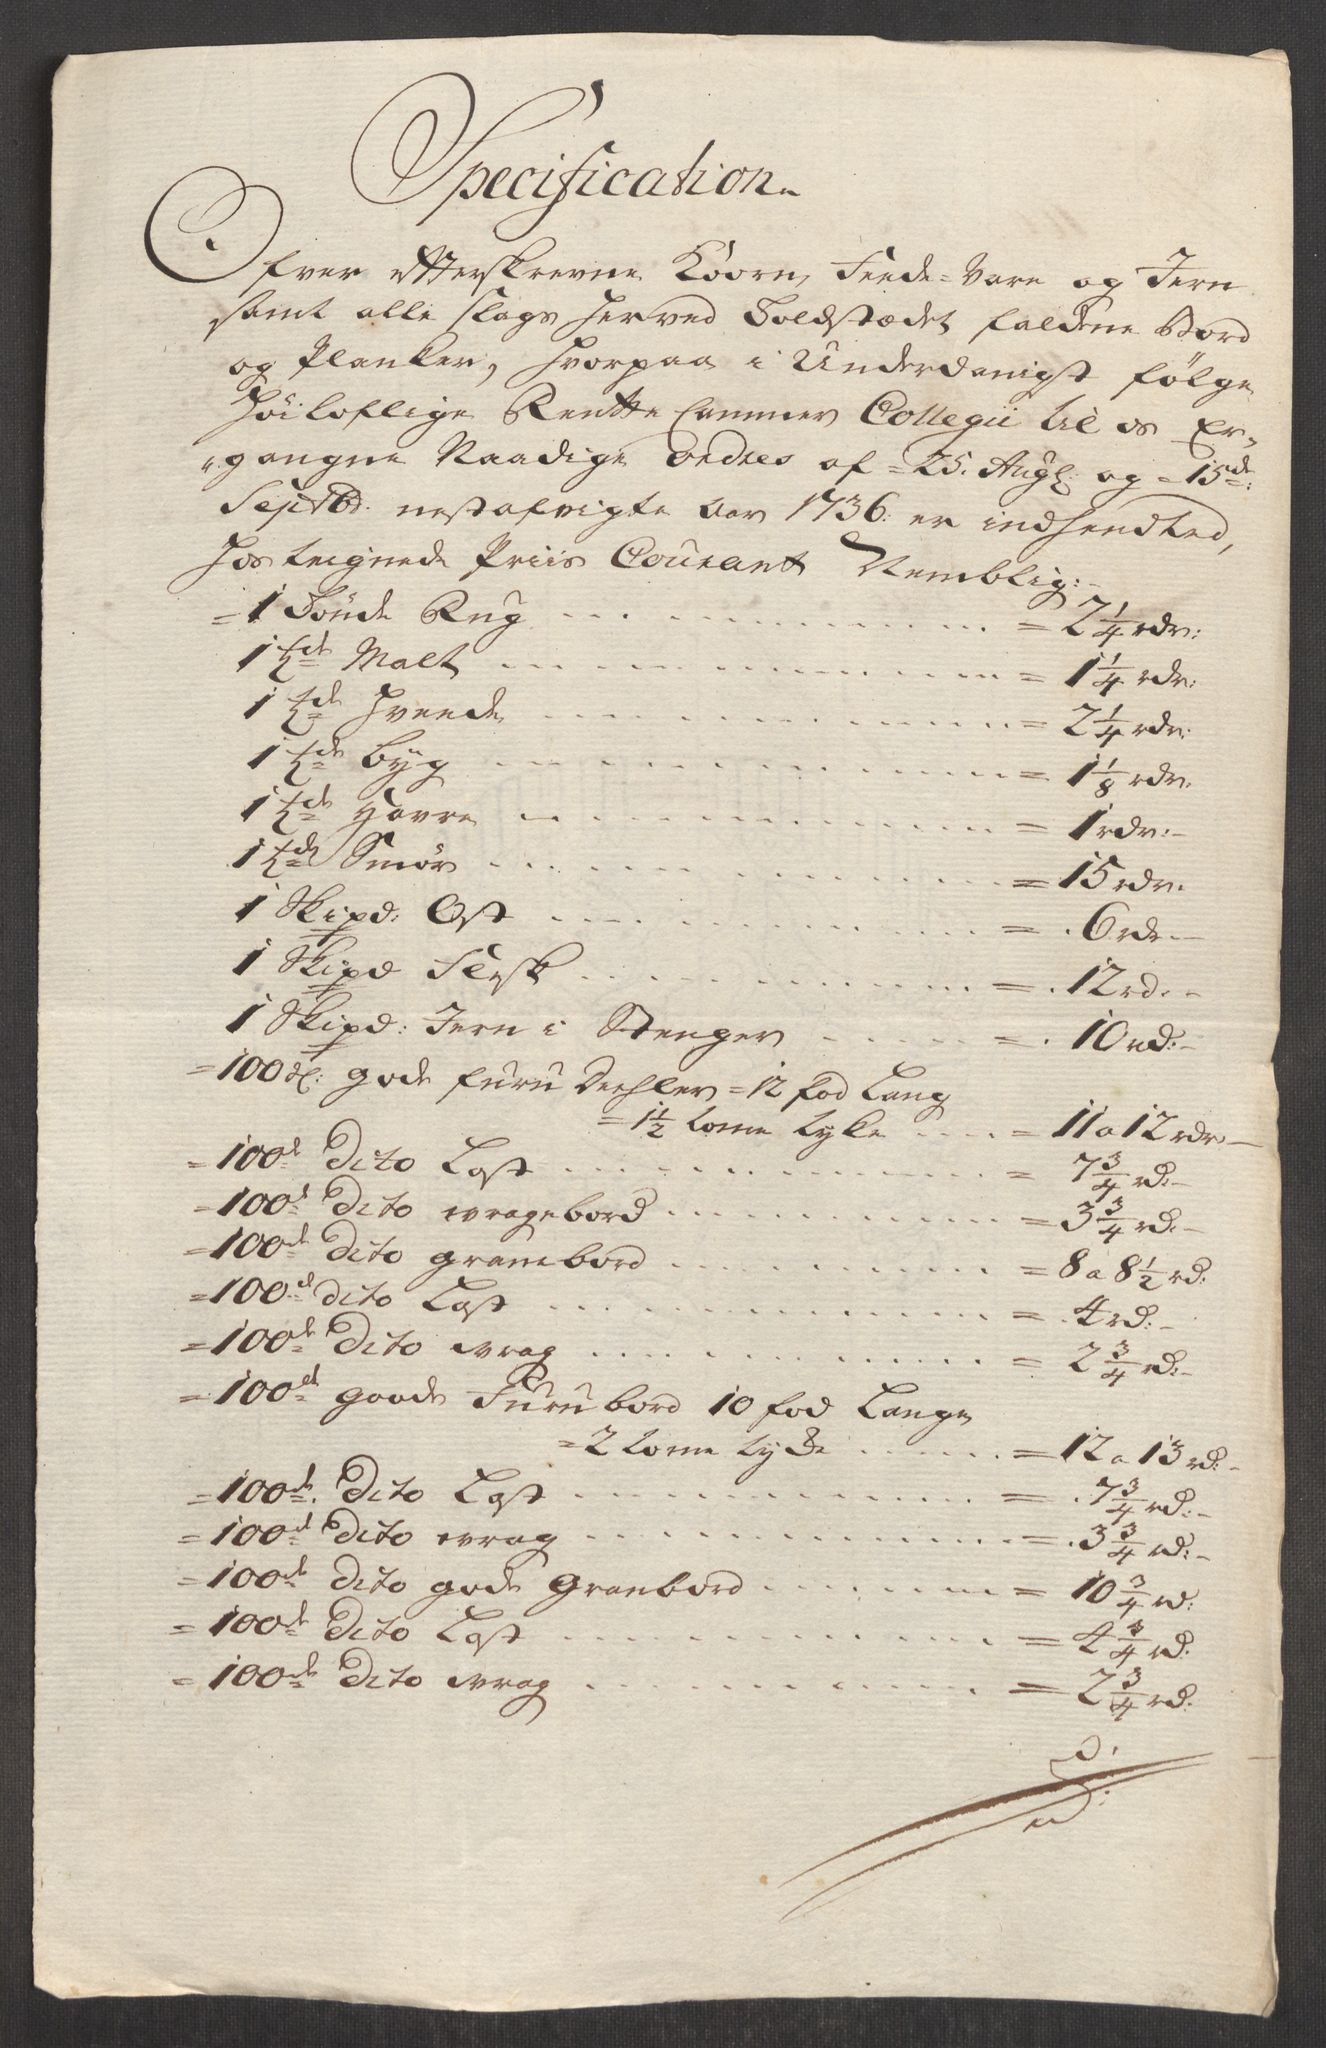 Specification
Ofver efterskrevne Koorn, Feede-Vare og Jern
samt alle slags herved Toldstædet faldene Bord
og Planker, hvorpaa i Underdanigst følge
Høiloflige Rentte Cammer Collegii til os Er-
gangne Naadige Ordres af 25. Augl: og 15de:
Septbr. nestafvigte Aar 1736: er indhendted,
hos teignede Priis Courant Nemblig:-
=1 Tönde Rug = 2 1/4 rdr:
1 tde Malt = 1 1/4 rdr:
1 tde Hveede = 2 1/4 rdr:
1 tde Byg = 1 1/8 rdr:
1 tde Havre = 1 rdr:-
1 tde Smør = 15 rdr.
1 Skipd: Ost = 6 rdr.-
1 Skipd Flesk = 12 rd.-
1 Skipd: Jern i Stenger = 10 rd:-
=100 d: gode furu Deehler =12 fod Lang
=1 1/2 tome tyke = 11 a 12 rdr-
=100d Dito Last = 7 3/4 rd:-
=100d Dito vragebord = 3 3/4 rd:-
=100d Dito granebord = 8 a 8 1/2 rd:
=100d dito Last = 4 rd:-
=100d Dito vrag = 2 3/4 rd:-
=100d goode Furubord 10 fod Lange
=2 tome tyke = 12 a 13 rd:-
=100d. Dito Last = 7 3/4 rd:-
=100d Dito vrag = 3 3/4 rd:-
=100d Dito gode Granbord = 10 3/4 rd:
=100d Dito Last = 4 3/4 rd:
=100d Dito vrag = 2 3/4 rd: